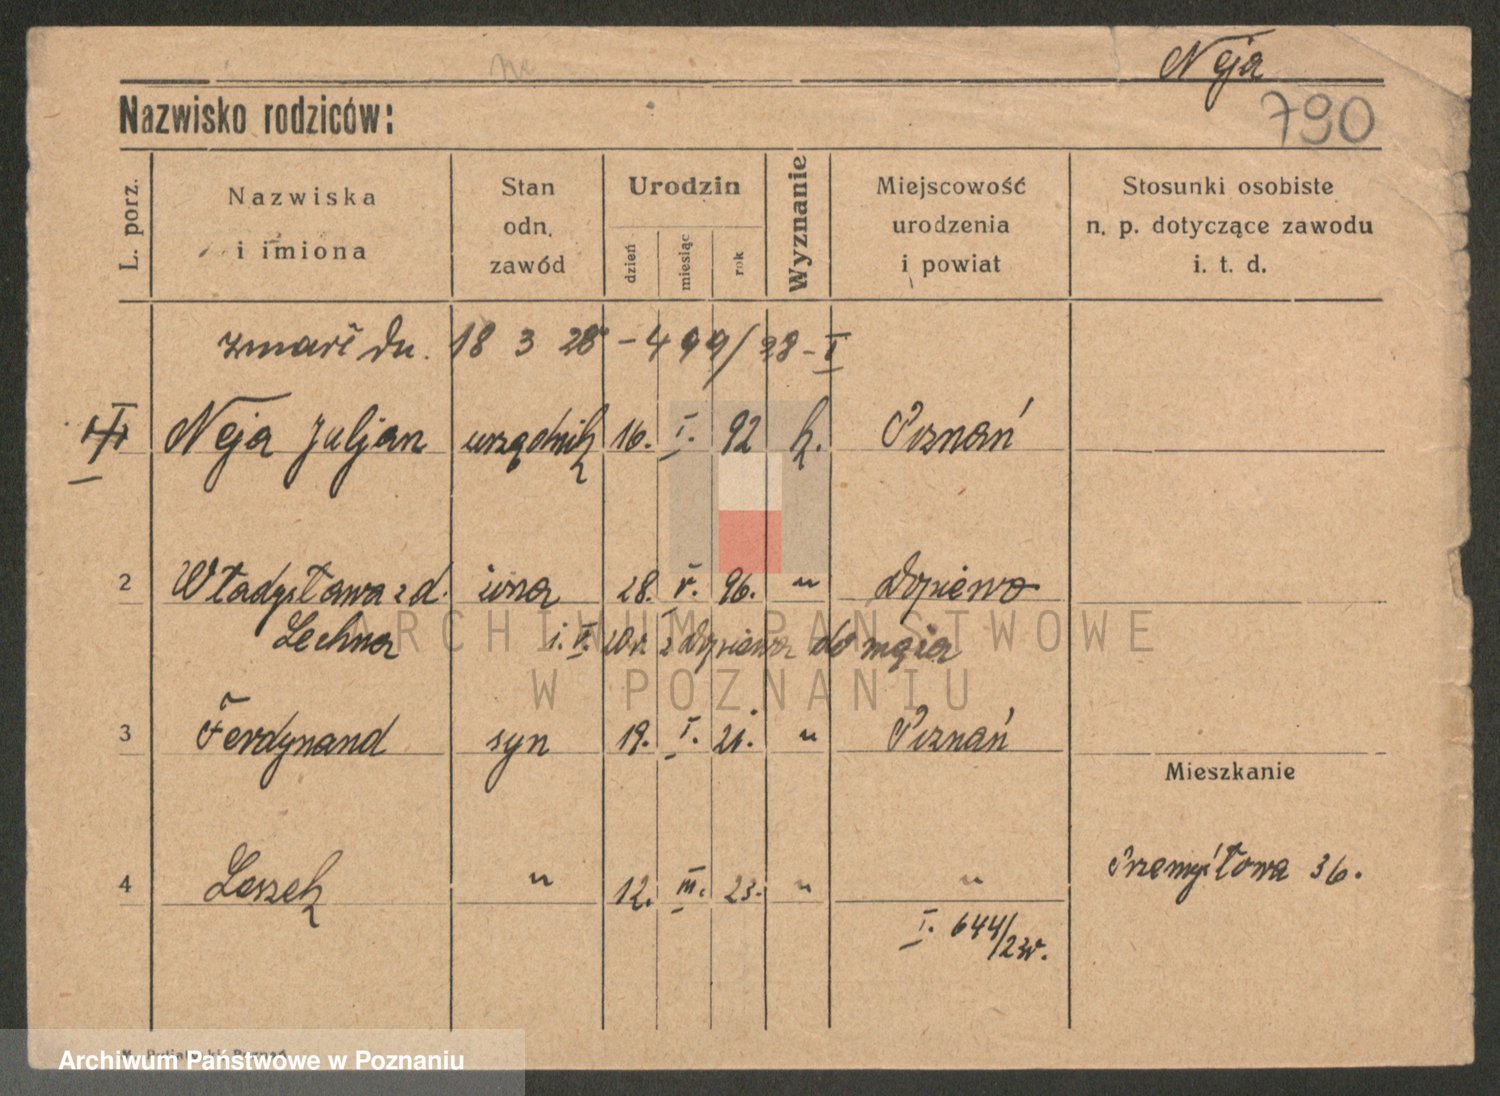 Neja
790
Nazwisko rodziców:
L. porz.
Nazwiska
i imiona
Stan
odn.
zawód
Urodzin
dzień
miesiąc
rok
Wyznanie
Miejscowość
urodzenia
i powiat
Stosunki osobiste
n. p. dotyczące zawodu
i. t. d.
zmarł dn. 18 3 28 - 499/28 - I
Neja Juljan urzędnik 16. I. 92 k. Poznań
2 Władysława z d. żona 28. V. 96. " Dopiewo
Lechna i. V. 20 r. z Dopiewa do męża
ARCHIWUM PAŃSTWOWE
W POZNANIU
3 Ferdynand syn 19. I. 21. " Poznań
Mieszkanie
4 Leszek " 12. III. 23. " "
Przemysłowa 36.
I. 644/23r.
Archiwum Państwowe w Poznaniu